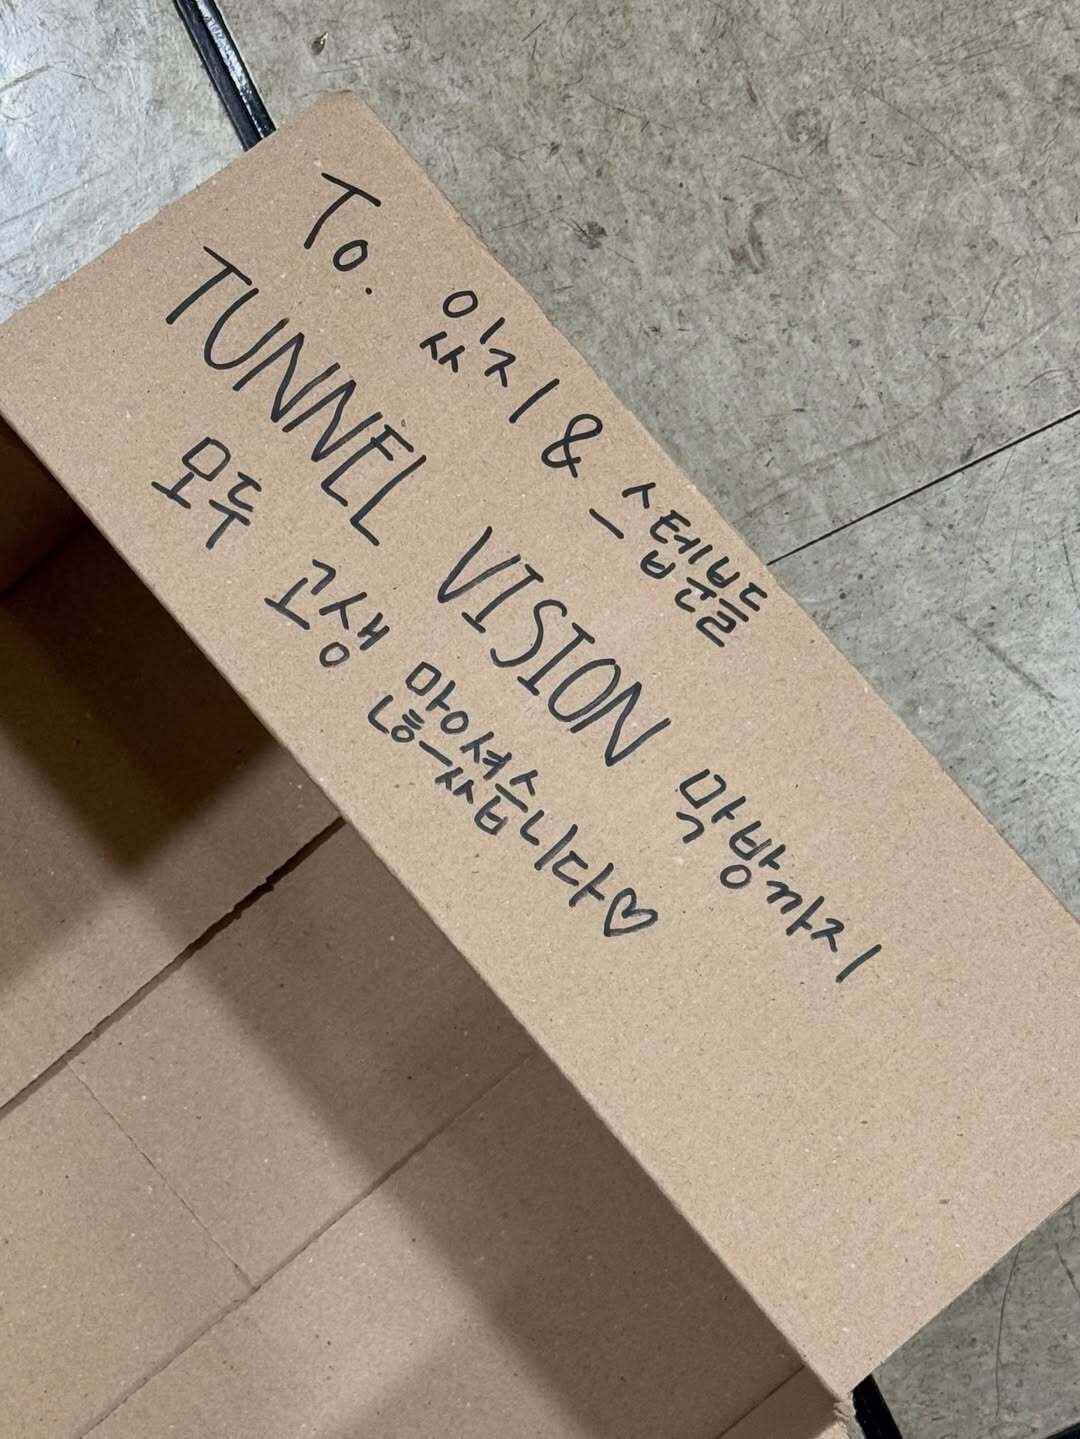 To. 있지 & 스텝분들
TUNNEL VISION 막방까지
모두 고생 많으셨습니다♡